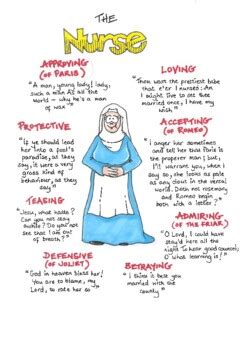 THE
Nurse
APPROVING
(OF PARIS)
"A man, young lady! lady,
such a man as all the
world - why he's a man
of wax"
LOVING
"Thou wast the prettiest babe
that e'er I nursed: An
I might live to see thee
married once, I have my
wish"
PROTECTIVE
"If ye should lead
her into a fool's
paradise, as they
say, it were a very
gross kind of
behaviour, as they
say"
ACCEPTING
(OF ROMEO)
"I anger her sometimes
and tell her that Paris is
the properer man; but,
I'll warrant you, when I
say so, she looks as pale
as any clout in the versal
world. Doth not rosemary
and Romeo begin
both with a letter?"
TEASING
"Jesu, what haste?
Can you not stay
awhile? Do you not
see that I am out
of breath?"
ADMIRING
(OF THE FRIAR)
"O Lord, I could have
stay'd here all the
night To hear good counsel;
O what learning is!"
DEFENSIVE
(OF JULIET)
"God in heaven bless her!
You are to blame, my
Lord, to rate her so"
BETRAYING
"I think it best you
married with the
county"